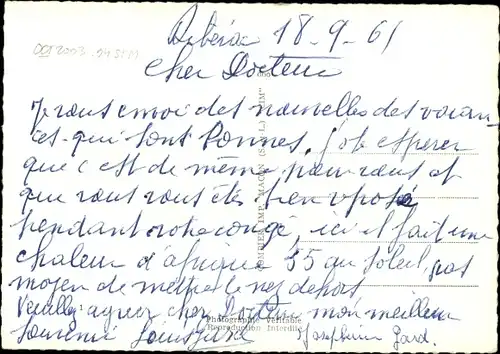 18-9-61
Cher Docteur
Je vous envoi des nouvelles des vacan
ces qui sont bonnes. J'ose esperer
que c'est de même pour vous et
que vous vous êtes bien reposé
pendant votre congé, ici il fait une
chaleur d'afrique 55 au soleil, pas
moyen de mettre le nez dehors
Veuillez agréer cher Docteur mon meilleur
souvenir Joséphine Gard.
Photographie Véritable
Reproduction Interdite